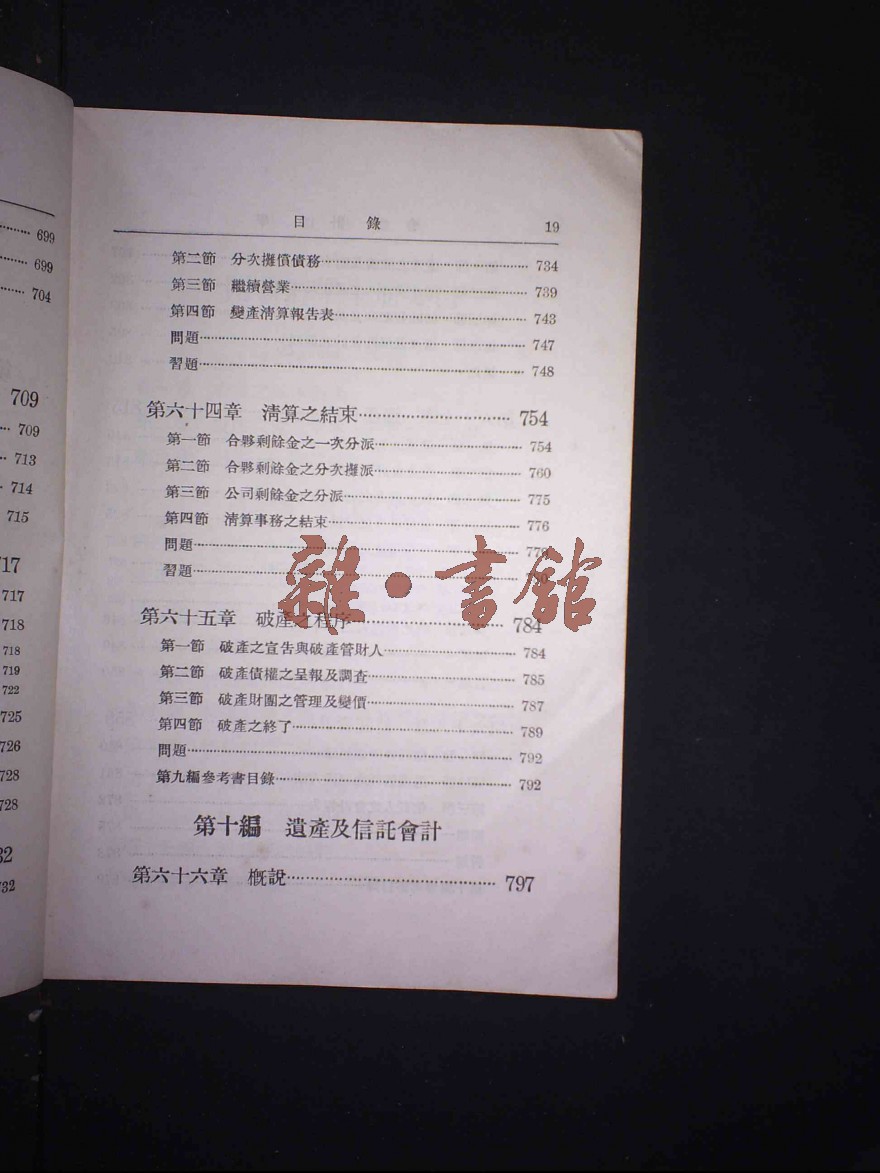 699
699
704
709
709
713
714
715
717
717
718
718
719
722
725
726
728
728
732
732
目 錄 19
第二節 分次攤償債務 734
第三節 繼續營業 739
第四節 變產清算報告表 743
問題 747
習題 748
第六十四章 清算之結束 754
第一節 合夥剩餘金之一次分派 754
第二節 合夥剩餘金之分次攤派 760
第三節 公司剩餘金之分派 775
第四節 清算事務之結束 776
問題
習題
雜·書館
第六十五章 破產之程序 784
第一節 破產之宣告與破產管財人 784
第二節 破產債權之呈報及調查 785
第三節 破產財團之管理及變價 787
第四節 破產之終了 789
問題 792
第九編參考書目錄 792
第十編 遺產及信託會計
第六十六章 概說 797